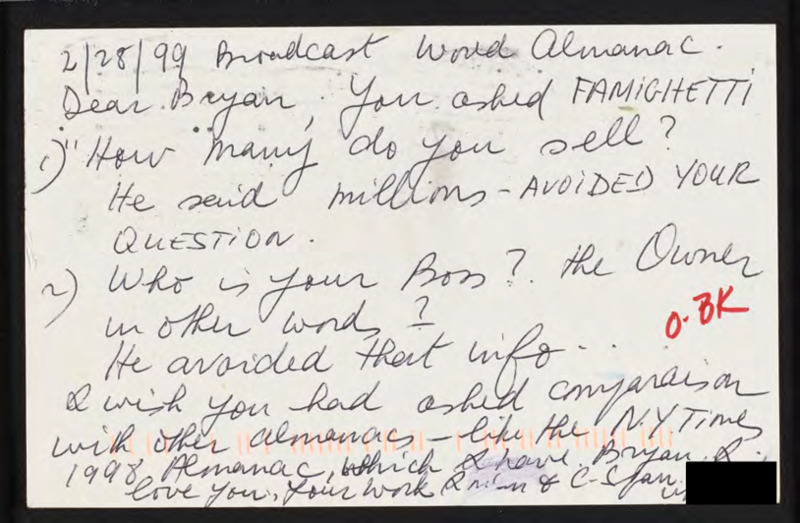 2/28/99 Broadcast World Almanac.
Dear Bryan, You asked FAMIGHETTI
1) "How many do you sell?
He said millions - AVOIDED YOUR
QUESTION.
2) Who is your Boss? the Owner
in other words?
O-BK
He avoided that info...
I wish you had asked comparaison
with other almanacs - like the N.Y Times
1998 Almanac, which I have, Bryan, I
love you, your work & C-Span